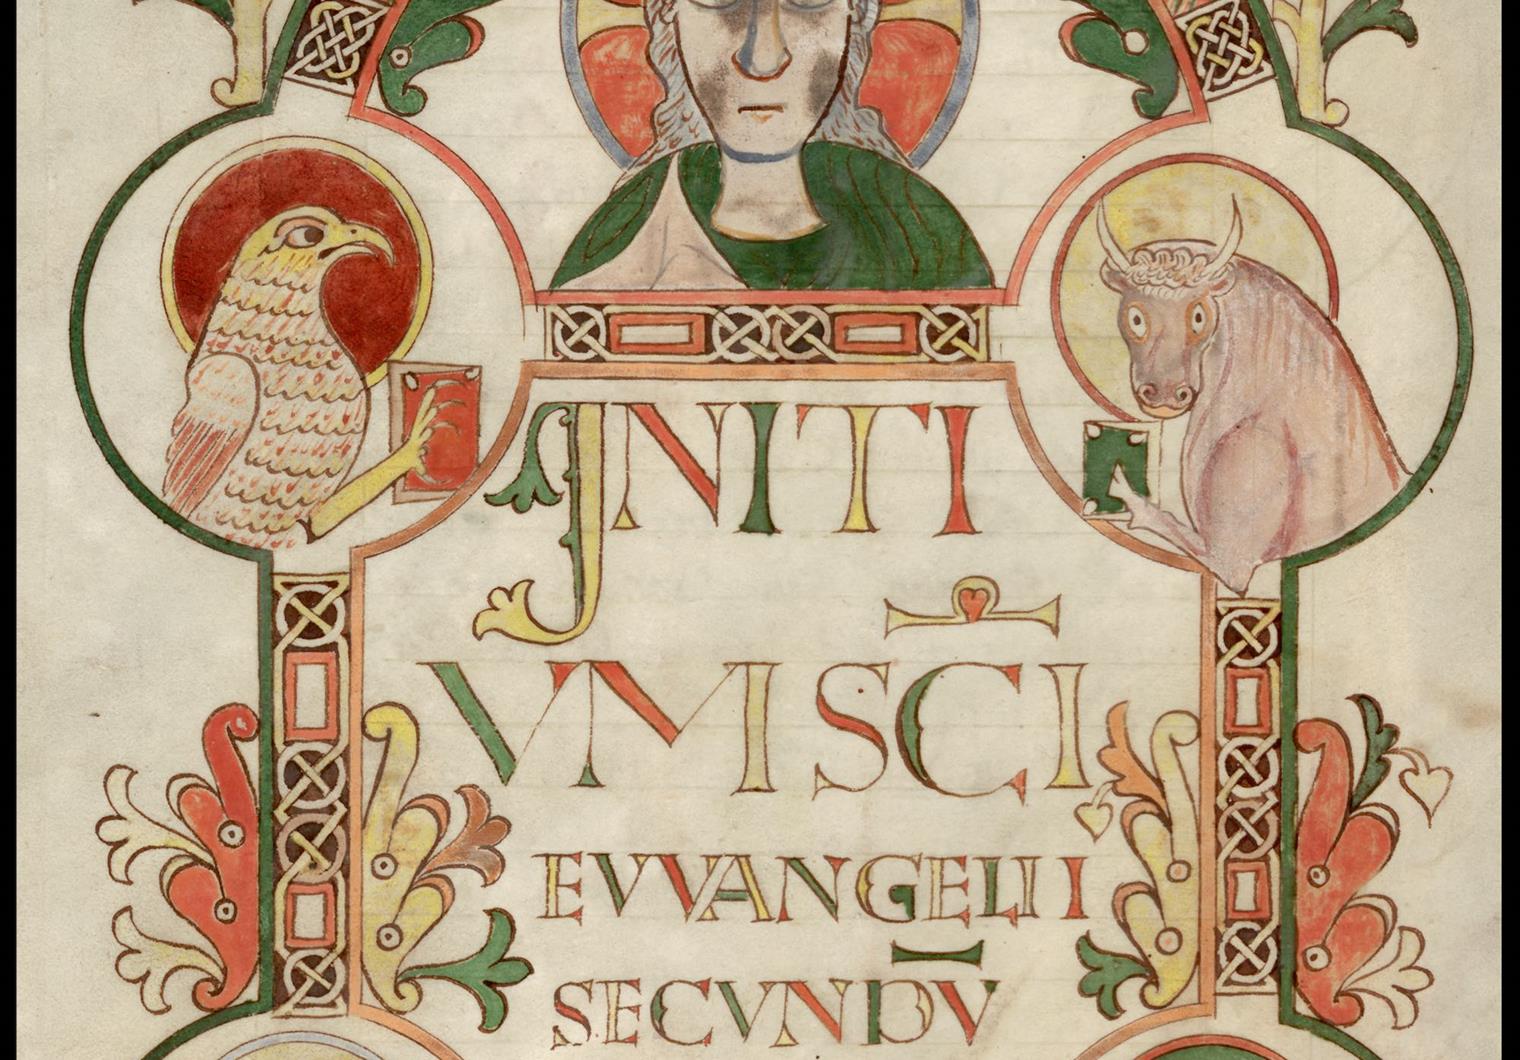 INITI
VM SC̄I
EVVANGELII
SECVNDV̄